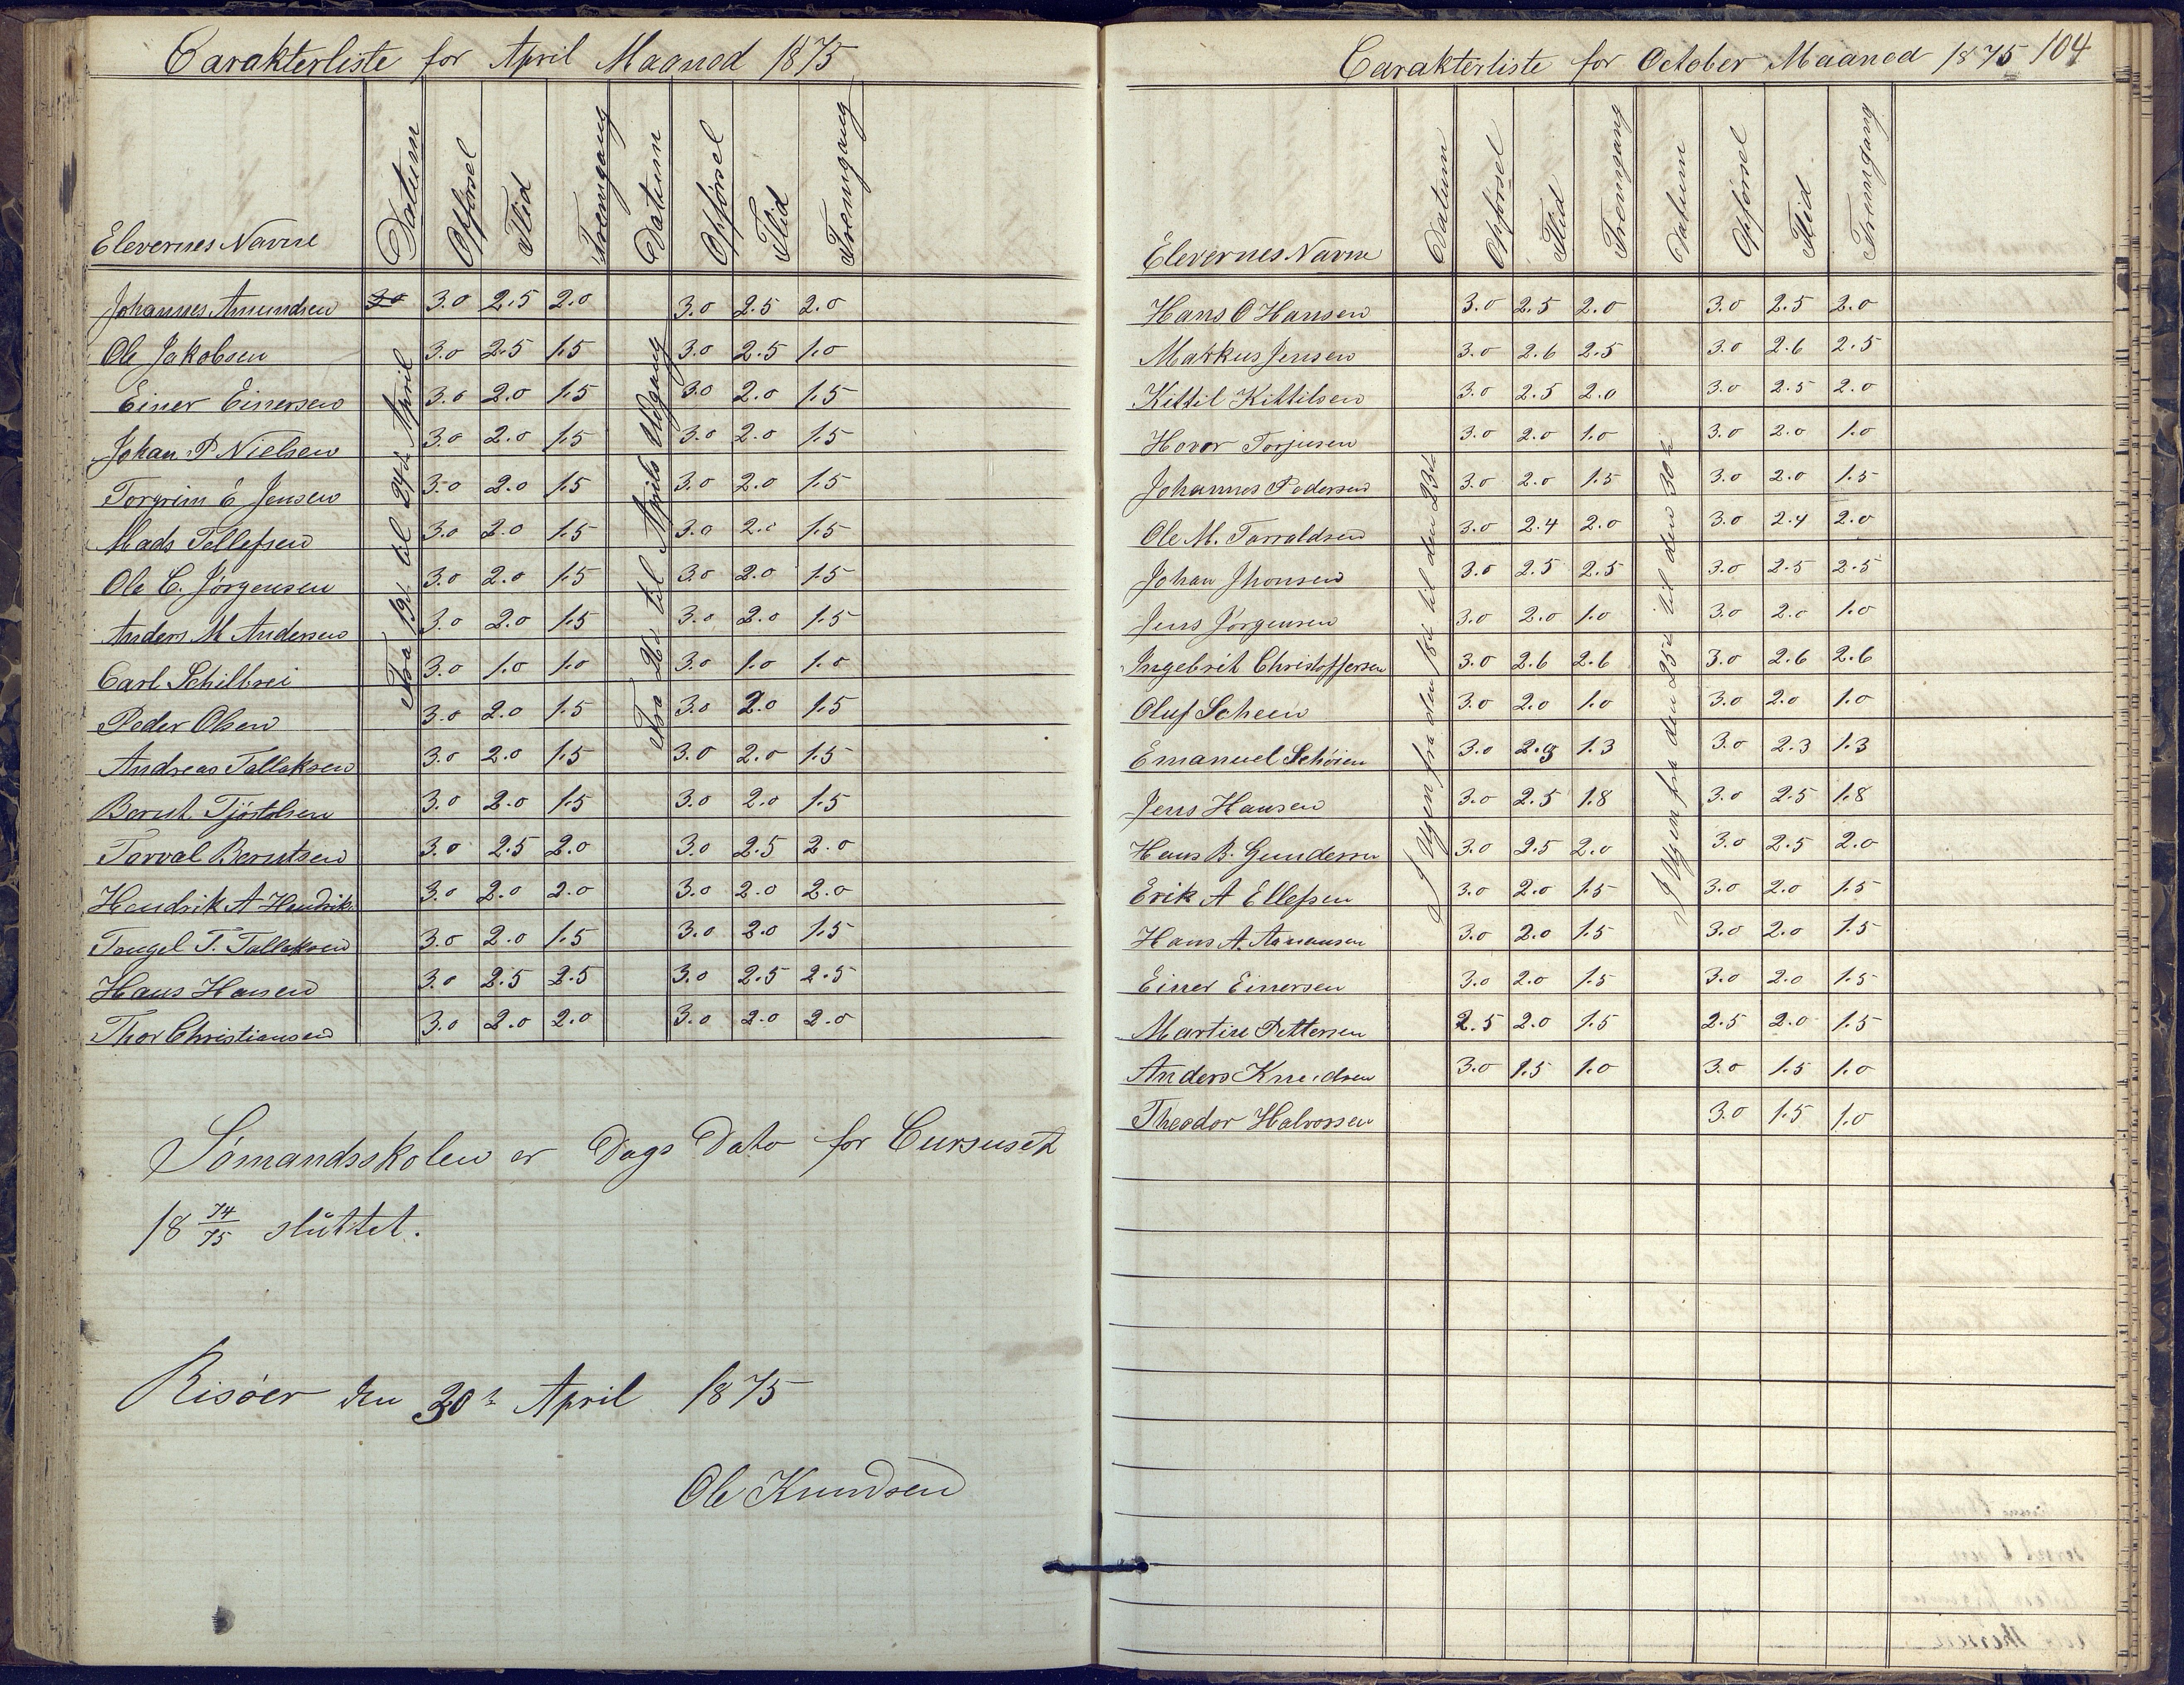 Carakterliste for April Maaned 1875
Elevernes Navne Datum Opførsel Flid Fremgang Datum Opførsel Flid Fremgang
Fra 19d til 24d April
Fra 26d til Aprils Udgang
Johannes Amundsen 3.0 3.0 2.5 2.0 3.0 2.5 2.0
Ole Jakobsen 3.0 2.5 1.5 3.0 2.5 1.0
Einer Einersen 3.0 2.0 1.5 3.0 2.0 1.5
Johan P Nielsen 3.0 2.0 1.5 3.0 2.0 1.5
Torgrim E Jensen 3.0 2.0 1.5 3.0 2.0 1.5
Mads Tellefsen 3.0 2.0 1.5 3.0 2.0 1.5
Ole C. Jørgensen 3.0 2.0 1.5 3.0 2.0 1.5
Anders M Andersen 3.0 2.0 1.5 3.0 2.0 1.5
Carl Schilbrei 3.0 1.0 1.0 3.0 1.0 1.0
Peder Olsen 3.0 2.0 1.5 3.0 2.0 1.5
Andreas Tallaksen 3.0 2.0 1.5 3.0 2.0 1.5
Bernt Tjöstolsen 3.0 2.0 1.5 3.0 2.0 1.5
Torval Berntsen 3.0 2.5 2.0 3.0 2.5 2.0
Hendrik A Hendrik. 3.0 2.0 2.0 3.0 2.0 2.0
Tengel T. Tallaksen 3.0 2.0 1.5 3.0 2.0 1.5
Hans Hansen 3.0 2.5 2.5 3.0 2.5 2.5
Thor Christiansen 3.0 2.0 2.0 3.0 2.0 2.0
Sömandsskolen er Dags Dato for Cursuset
18 74/75 sluttet.
Risöer den 30t April 1875
Ole Knudsen
Carakterliste for October Maaned 1875 104
Elevernes Navne Datum Opførsel Flid Fremgang Datum Opførsel Flid Fremgang
I Ugen fra den 18d til den 23d
I Ugen fra den 25d til den 30t
Hans O Hansen 3.0 2.5 2.0 3.0 2.5 2.0
Markus Jensen 3.0 2.6 2.5 3.0 2.6 2.5
Kittil Kittilsen 3.0 2.5 2.0 3.0 2.5 2.0
Hovor Torjusen 3.0 2.0 1.0 3.0 2.0 1.0
Johannes Pedersen 3.0 2.0 1.5 3.0 2.0 1.5
Ole M. Tarraldsen 3.0 2.4 2.0 3.0 2.4 2.0
Johan Jhonsen 3.0 2.5 2.5 3.0 2.5 2.5
Jens Jörgensen 3.0 2.0 1.0 3.0 2.0 1.0
Ingebrit Christoffersen 3.0 2.6 2.6 3.0 2.6 2.6
Oluf Scheen 3.0 2.0 1.0 3.0 2.0 1.0
Emanuel Schöien 3.0 2.3 1.3 3.0 2.3 1.3
Jens Hansen 3.0 2.5 1.8 3.0 2.5 1.8
Hans B. Gundersen 3.0 2.5 2.0 3.0 2.5 2.0
Erik A Ellefsen 3.0 2.0 1.5 3.0 2.0 1.5
Hans A. Aamansen 3.0 2.0 1.5 3.0 2.0 1.5
Einer Einersen 3.0 2.0 1.5 3.0 2.0 1.5
Martin Pettersen 2.5 2.0 1.5 2.5 2.0 1.5
Anders Knudsen 3.0 1.5 1.0 3.0 1.5 1.0
Theodor Halvorsen 3.0 1.5 1.0